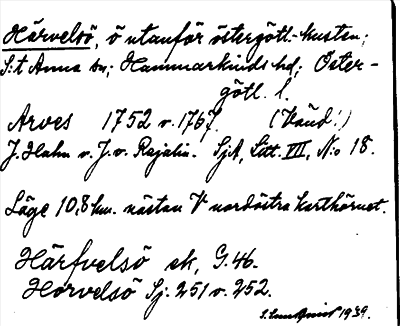 Härvelsö, ö utanför östergötl.-kusten;
S:t Anna sn; Hammarkinds hd; Öster-
götl. l.
Arves 1752 o. 1767. (Vänd!)
J. Hahn o. J. v. Rajalin. SjA, Litt. VII, N:o 18.
Läge 10,8 km. nästan V nordöstra karthörnet.
Härfvelsö ek, G. 46.
Horvelsö Sj. 251 o. 252.
1939.